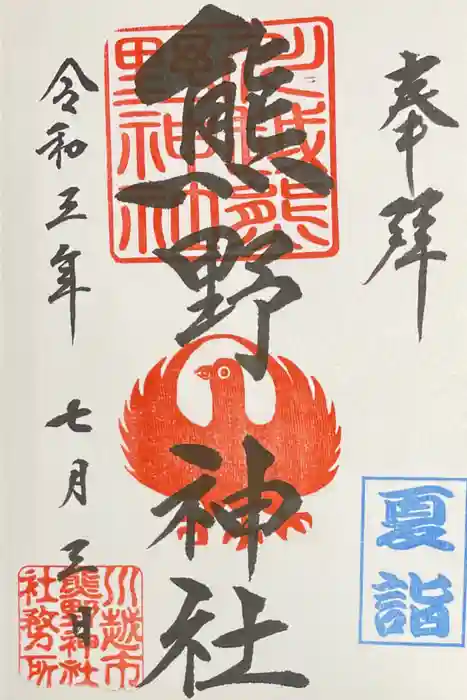 奉拝
夏詣
川越熊
野神社
熊野神社
令和三年七月三日
川越市
熊野神社
社務所